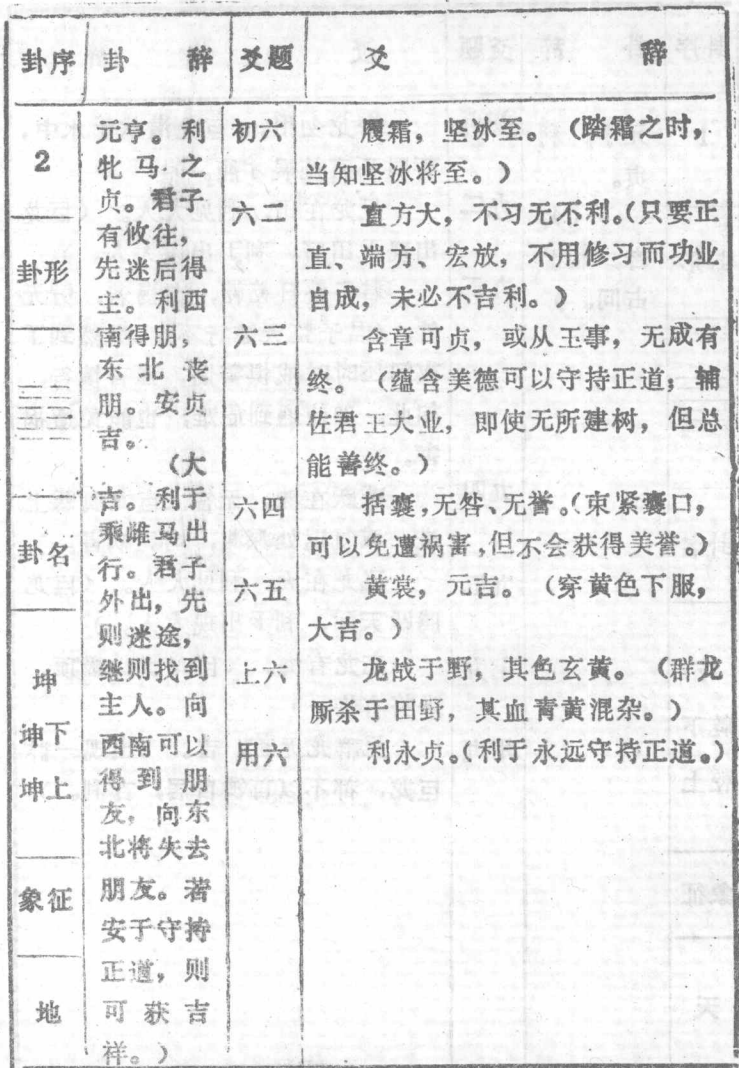 卦序 卦 辞 爻题 爻 辞
2
卦形
卦名
坤
坤下
坤上
象征
地
元亨。利
牝马之
贞。君子
有攸往，
先迷后得
主。利西
南得朋，
东北丧
朋。安贞
吉。
（大
吉。利于
乘雌马出
行。君子
外出，先
则迷途，
继则找到
主人。向
西南可以
得到朋
友，向东
北将失去
朋友。若
安于守持
正道，则
可获吉
祥。）
初六
六二
六三
六四
六五
上六
用六
履霜，坚冰至。（踏霜之时，
当知坚冰将至。）
直方大，不习无不利。（只要正
直、端方、宏放，不用修习而功业
自成，未必不吉利。）
含章可贞，或从王事，无成有
终。（蕴含美德可以守持正道；辅
佐君王大业，即使无所建树，但总
能善终。）
括囊，无咎、无誉。（束紧囊口，
可以免遭祸害，但不会获得美誉。）
黄裳，元吉。（穿黄色下服，
大吉。）
龙战于野，其色玄黄。（群龙
厮杀于田野，其血青黄混杂。）
利永贞。（利于永远守持正道。）